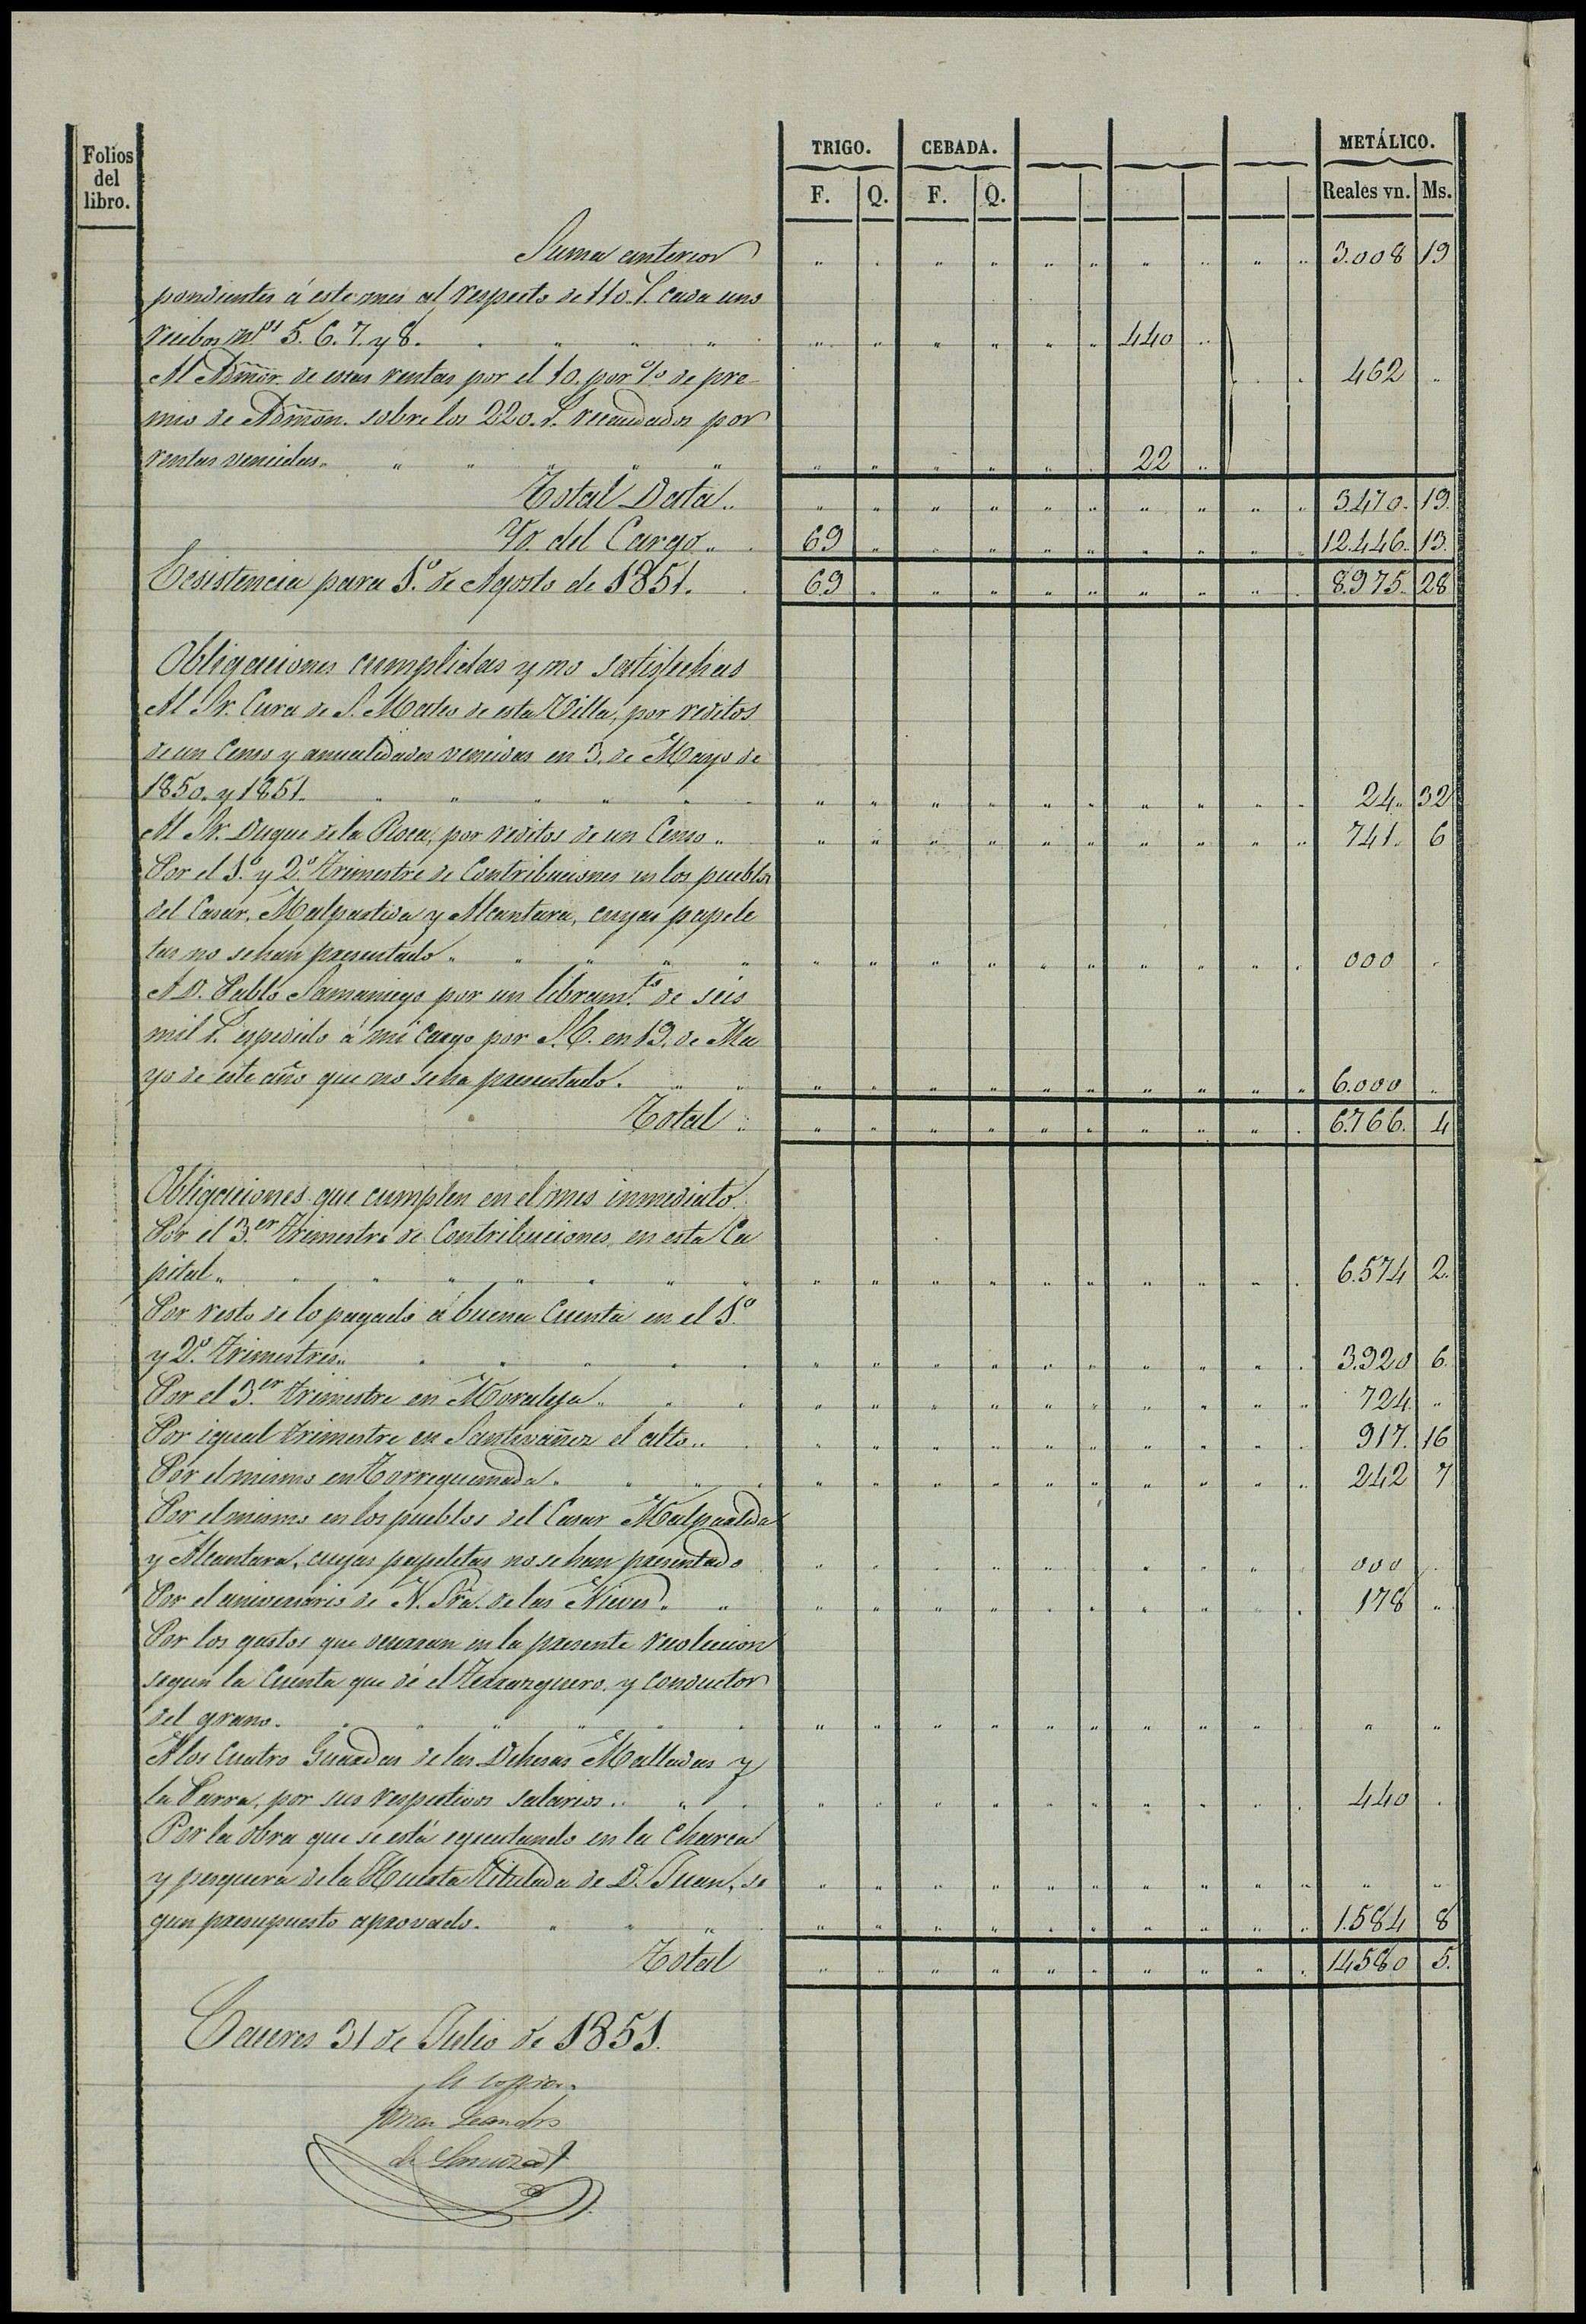 Folios del libro. TRIGO. CEBADA. METÁLICO.
F. Q. F. Q. Reales vn. Ms.
Suma anterior 3.008 19
pondientes á este mes al respecto de 110. r. cada uno
recibos nos 5. 6. 7. y 8. 440
Al Admor. de estas rentas por el 10. por % de pre- 462
mio de Admon. sobre los 220. r. recaudados por
rentas vencidas 22
Total Data 3.470. 19.
Yd. del Cargo 69 12.446. 13.
Ecsistencia para 1º. de Agosto de 1851. 69 8.975. 28
Obligaciones cumplidas y no satisfechas
Al Sr. Cura de S. Mateo de esta Villa, por reditos
de un Censo y anualidades vencidas en 3. de Mayo de
1850. y 1851. 24. 32
Al Sr. Duque de la Roca, por reditos de un Censo 741. 6
Por el 1º. y 2º. trimestre de Contribuciones en los pueblos
del Casar, Malpartida y Alcantara, cuyas papele
tas no se han presentado 000
A D. Pablo Samaniego por un libramto. de seis
mil r. espedido á mi cargo por S.E. en 19. de Ma
yo de este año que no se ha presentado. 6.000
Total 6.766. 4
Obligaciones que cumplen en el mes inmediato.
Por el 3.er trimestre de Contribuciones en esta Ca
pital 6.574 2.
Por resto de lo pagado á buena Cuenta en el 1º.
y 2º. trimestres 3.920 6.
Por el 3.er trimestre en Moraleja 724
Por igual trimestre en Santivañez el alto 917. 16
Por el mismo en Torrequemada. 242 7
Por el mismo en los pueblos del Casar Malpartida
y Alcantara, cuyas papeletas no se han presentado 000
Por el aniversario de N. Sra. de las Nieves. 178
Por los gastos que ocurran en la presente recolecion
segun la Cuenta que dé el terrazguero y conductor
del grano.
A los Cuatro Guardas de las Dehesas Malladas y
la Parra, por sus respectivos salarios 440
Por la obra que se está egecutando en la Charca
y pesquera de la Huerta titulada de D. Juan, se
gun presupuesto aprovado. 1.584 8
Total 14580 5.
Caceres 31 de Julio de 1851.
Es copia.
Leandro
de